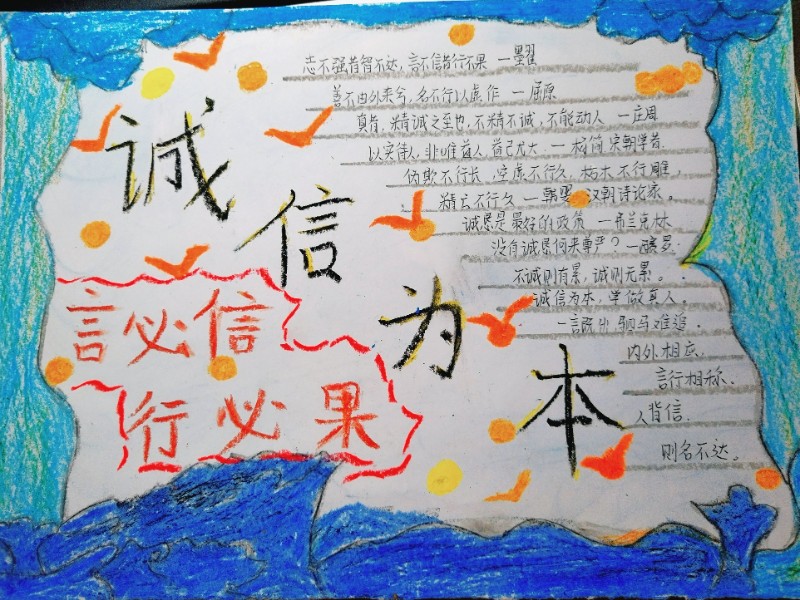 诚信为本
言必信
行必果
志不强者智不达,言不信者行不果 —墨翟
善不由外来兮,名不可以虚作 —屈原
真者,精诚之至也,不精不诚,不能动人 —庄周
以实待人,非唯益人,益己尤大 —杨简 宋朝学者
伪欺不行长,空虚不行久,枯木不行雕,
精亡不行久 —韩婴 汉朝诗论家。
诚恳是最好的政策 —弗兰克林
没有诚恳何来尊严?
不诚则有累,诚则无累。
诚信为本,学做真人。
一言既出,驷马难追.
内外相应.
言行相称.
人背信.
则名不达。